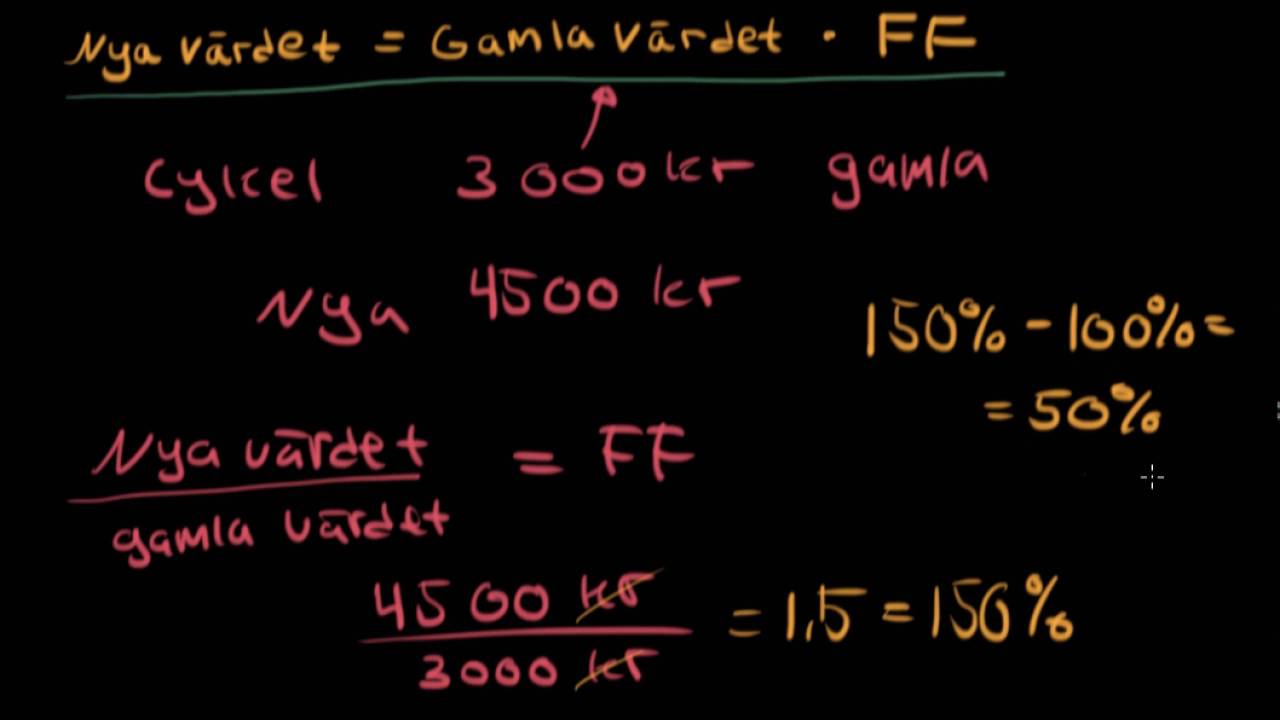 Nya värdet = Gamla värdet · FF
Cykel 3000kr gamla
Nya 4500 kr
150% - 100% =
= 50%
Nya värdet = FF
gamla värdet
4500 kr = 1,5 = 150%
3000 kr